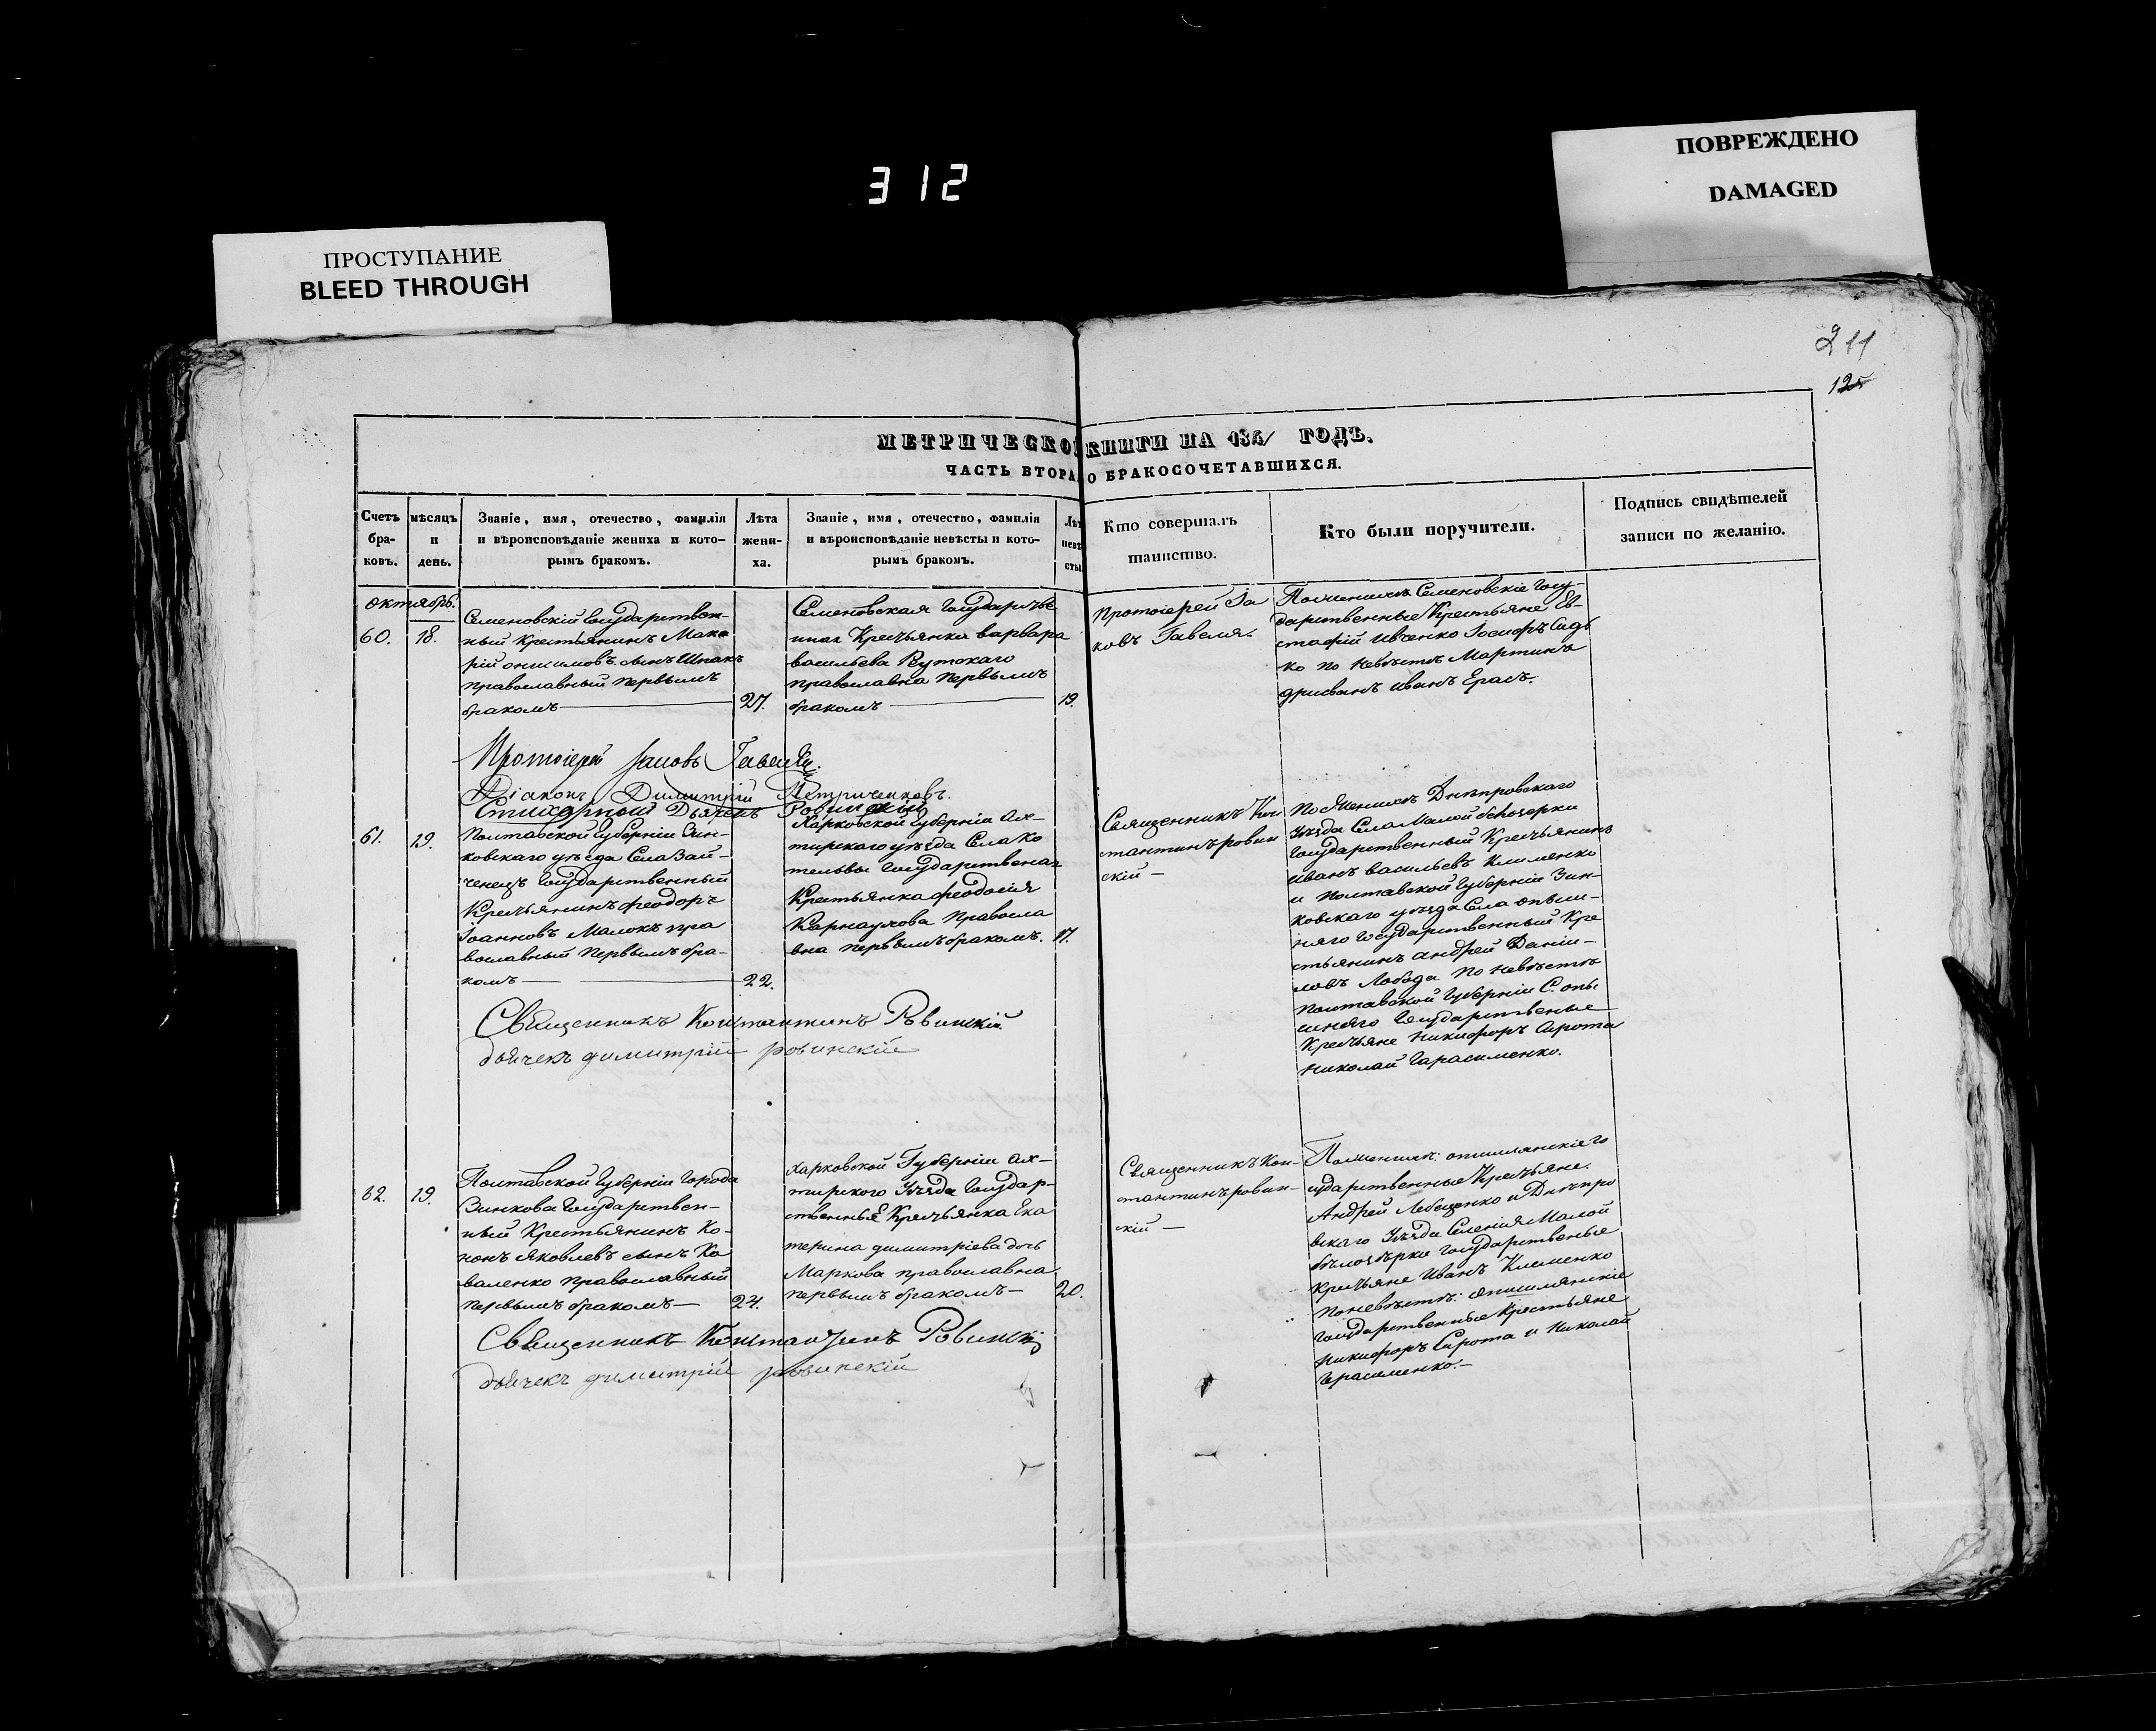 312
ПРОСТУПАНИЕ
BLEED THROUGH
ПОВРЕЖДЕНО
DAMAGED
211
125
МЕТРИЧЕСКОЙ КНИГИ НА 185 ГОДЪ.
ЧАСТЬ ВТОРА О БРАКОСОЧЕТАВШИХСЯ.
Счетъ бра-ковъ.
мѣсяцъ и день.
Званіе, имя, отечество, фамилія
и вѣроисповѣданіе жениха и кото-
рымъ бракомъ.
Лѣта жени-ха.
Званіе, имя, отечество, фамилія
и вѣроисповѣданіе невѣсты и кото-
рымъ бракомъ.
Лѣт невѣ сты
Кто совершалъ
таинство.
Кто были поручители.
Подпись свидѣтелей
записи по желанію.
октябрь.
60.
18.
Семеновскій Государствен-
ный Крестьянинъ Мака
рій онисимовъ сынъ Шпакъ
православный первымъ
бракомъ
27.
Семеновская Государстве
нная Крестьянка варвара
васильева Реутокаго
православна первымъ
бракомъ
19.
Протоіерей Іа
ковъ Гавеля
По женихѣ Семеновскіе Госу-
дарственные Крестьяне Ев-
стафій Ивченко Іосифъ Сидь
ко по невѣстѣ Мартинъ
иванъ
Протоіерей Іаковъ
Діаконъ Димитрій Петриченковъ.
Стихарный Дьячекъ Ровинскій
61.
19.
Полтавской Губерніи Зин-
ковскаго уѣзда Села Зай-
ченецъ Государственный
Крестьянинъ Феодоръ
Іоанновъ Малокъ пра
вославный первымъ бра-
комъ
22.
Харковской Губерніи Ах-
тирскаго уѣзда Села Ко
тельвы Государственая
Крестьянка феодосия
Карнаухова Правосла
вна первымъ бракомъ.
17.
Священникъ Кон
стантинъ ровин
скій —
По Женихѣ Днѣпровскаго
Уѣзда Села Малой бѣлозерки
Государственный Крестьянинъ
иванъ васильевъ Клименко
и Полтавской Губерніи Зин-
ковскаго уѣзда Села опѣши-
няго Государственный Кре
стьянинъ андрей Даніи-
ловъ Лобода по невѣстѣ
Полтавской Губерніи С. опы
шняго Государственые
Крестьяне Никифоръ Сирота
Николай Гарасименко.
Священникъ Константинъ Ровинскій
дьячекъ димитрій ровинскій
62.
19.
Полтавской Губерніи Города
Зинкова Государствен-
ный Крестьянинъ Ко-
нонъ Яковлевъ сынъ Ко
валенко православный
первымъ бракомъ —
24.
Харковской Губерніи Ах-
тирского Уѣзда Государ-
ственныя Крестьянка Ека
терина димитріева дочь
Маркова православна
первымъ бракомъ —
20.
Священникъ Кон-
стантинъ ровин-
скій —
По женихѣ: опишлянскіе го
ударственные Крестьяне.
Андрей и Днѣпро
вскаго Уѣзда Селенія Малой
бѣлозѣрки Государственые
Крестьяне Иванъ Клеменко
По невѣстѣ: опишлянскіе
Государственные Крестьяне
Никифоръ Сирота и Николай
Герасименко.—
Священникъ Константинъ Ровинскій
дьячекъ димитрій ровинскій